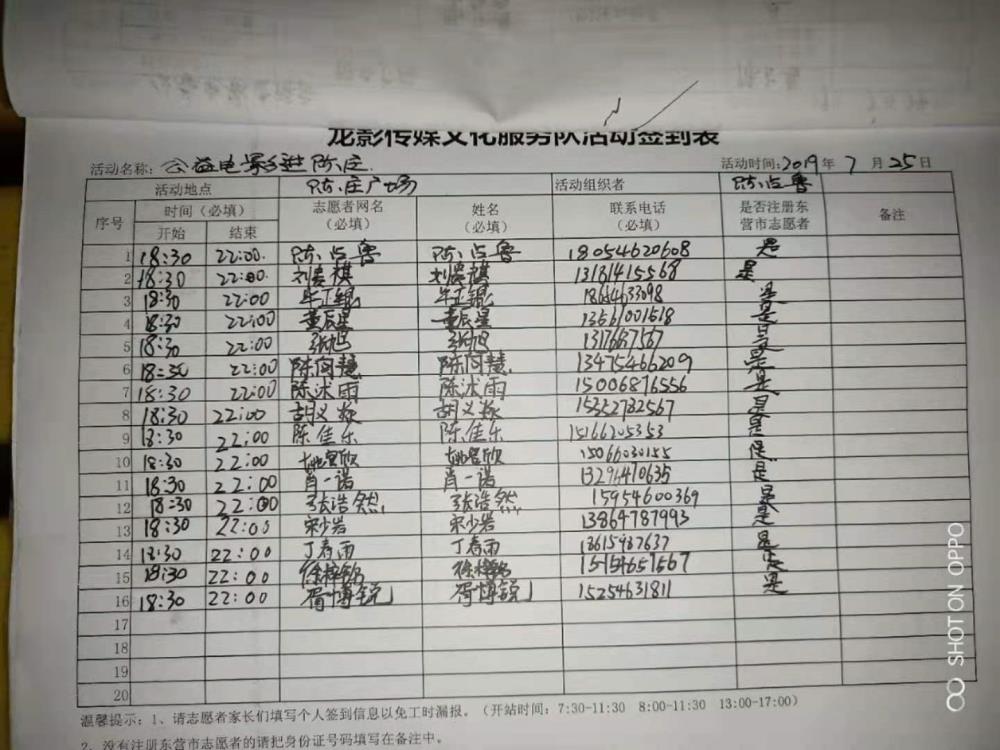 龙影传媒文化服务队活动签到表
活动名称：公益电影进陈庄 活动时间：2019年 7 月 25 日
活动地点 陈庄广场 活动组织者 陈占鲁
序号 时间（必填） 志愿者网名（必填） 姓名（必填） 联系电话（必填） 是否注册东营市志愿者 备注
开始 结束
1 18:30 22:00. 陈占鲁 陈占鲁 18054620608 是
2 18:30 22:00. 13181415568 是
3 18:30 22:00 牟正锟 牟正锟 是
4 18:30 22:00 董辰星 董辰星 是
5 18:30 22:00 张旭 张旭 是
6 18:30 22:00 陈阿慧 陈阿慧 13475466209 是
7 18:30 22:00 陈沭雨 陈沭雨 15006876556 是
8 18:30 22:00 15352732567 是
9 18:30 22:00 陈佳乐 陈佳乐 15166205353 是
10 18:30 22:00 15066030155 是
11 18:30 22:00 肖一诺 肖一诺 是
12 18:30 22:00 张浩然 张浩然 15954600369 是
13 18:30 22:00 宋少岩 宋少岩 13864787993 是
14 18:30 22:00 丁春雨 丁春雨 是
15 18:30 22:00 是
16 18:30 22:00 胥博锐 胥博锐 15254631811 是
17
18
19
20
温馨提示：1、请志愿者家长们填写个人签到信息以免工时漏报。（开站时间：7:30-11:30 8:00-11:30 13:00-17:00）
2、没有注册东营市志愿者的请把身份证号码填写在备注中。
SHOT ON OPPO